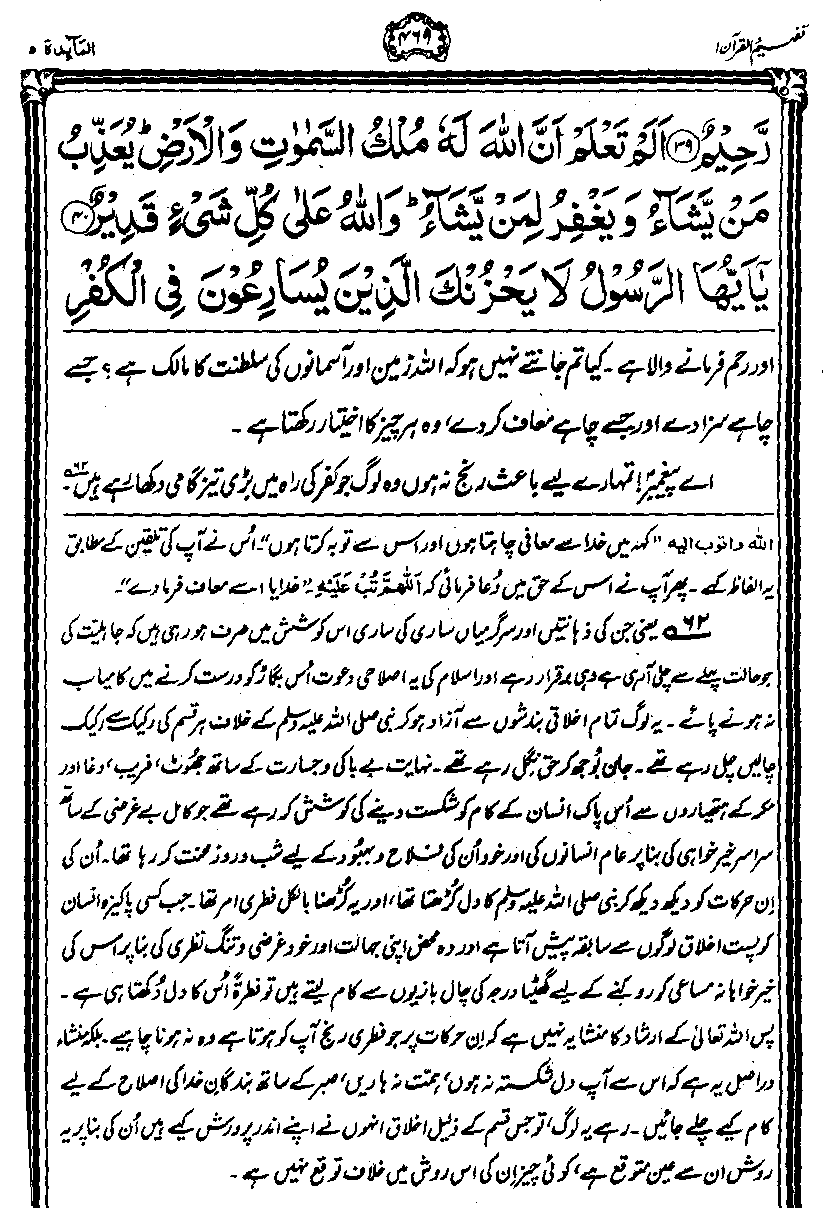 تفہیم القرآن ۱
۴۶۹
المآیدۃ ۵
رَّحِيْمٌ ﴿۳۹﴾ اَلَمْ تَعْلَمْ اَنَّ اللّٰهَ لَهٗ مُلْكُ السَّمٰوٰتِ وَالْاَرْضِ ؕ يُعَذِّبُ
مَنْ يَّشَآءُ وَيَغْفِرُ لِمَنْ يَّشَآءُ ؕ وَاللّٰهُ عَلٰى كُلِّ شَىْءٍ قَدِيْرٌ ﴿۴۰﴾
يٰۤاَيُّهَا الرَّسُوْلُ لَا يَحْزُنْكَ الَّذِيْنَ يُسَارِعُوْنَ فِى الْكُفْرِ
اور رحم فرمانے والا ہے۔ کیا تم جانتے نہیں ہو کہ اللہ زمین اور آسمانوں کی سلطنت کا مالک ہے؟ جسے
چاہے سزا دے اور جسے چاہے معاف کر دے، وہ ہر چیز کا اختیار رکھتا ہے۔
اے پیغمبرؐ! تمہارے لیے باعث رنج نہ ہوں وہ لوگ جو کفر کی راہ میں بڑی تیز گامی دکھا رہے ہیں۔ ۶۲
اللہ واتوب الیہ "کہہ میں خدا سے معافی چاہتا ہوں اور اس سے توبہ کرتا ہوں"۔ اُس نے آپ کی تلقین کے مطابق
یہ الفاظ کہے۔ پھر آپ نے اس کے حق میں دُعا فرمائی کہ اَللّٰهُمَّ تُبْ عَلَيْهِ۔ "خدایا اسے معاف فرما دے"۔
۶۲ یعنی جن کی ذہانتیں اور سرگرمیاں ساری کی ساری اس کوشش میں صرف ہو رہی ہیں کہ جاہلیت کی
جو حالت پہلے سے چلی آ رہی ہے وہی برقرار رہے اور اسلام کی یہ اصلاحی دعوت اُس بگاڑ کو درست کرنے میں کامیاب
نہ ہونے پائے۔ یہ لوگ تمام اخلاقی بندشوں سے آزاد ہو کر نبی صلی اللہ علیہ وسلم کے خلاف ہر قسم کی رکیک سے رکیک
چالیں چل رہے تھے۔ جان بُوجھ کر حق نِگل رہے تھے۔ نہایت بے باکی و جسارت کے ساتھ جھُوٹ، فریب، دغا اور
مکر کے ہتھیاروں سے اُس پاک انسان کے کام کو شکست دینے کی کوشش کر رہے تھے جو کامل بے غرضی کے ساتھ
سراسر خیر خواہی کی بنا پر عام انسانوں کی اور خود اُن کی فلاح و بہبُود کے لیے شب و روز محنت کر رہا تھا۔ اُن کی
اِن حرکات کو دیکھ دیکھ کر نبی صلی اللہ علیہ وسلم کا دل کُڑھتا تھا، اور یہ کُڑھنا بالکل فطری امر تھا۔ جب کسی پاکیزہ انسان
کو پست اخلاق لوگوں سے سابقہ پیش آتا ہے اور وہ محض اپنی جہالت اور خود غرضی و تنگ نظری کی بنا پر اس کی
خیر خواہانہ مساعی کو روکنے کے لیے گھٹیا درجہ کی چال بازیوں سے کام لیتے ہیں تو فطرۃً اُس کا دل دُکھتا ہی ہے۔
پس اللہ تعالیٰ کے ارشاد کا منشا یہ نہیں ہے کہ اِن حرکات پر جو فطری رنج آپ کو ہوتا ہے وہ نہ ہونا چاہیے۔ بلکہ منشاء
دراصل یہ ہے کہ اس سے آپ دل شکستہ نہ ہوں، ہمت نہ ہاریں، صبر کے ساتھ بندگانِ خدا کی اصلاح کے لیے
کام کیے چلے جائیں۔ رہے یہ لوگ، تو جس قسم کے ذلیل اخلاق انہوں نے اپنے اندر پرورش کیے ہیں اُن کی بنا پر یہ
روش ان سے عین متوقع ہے، کوئی چیز اِن کی اس روش میں خلاف توقع نہیں ہے۔